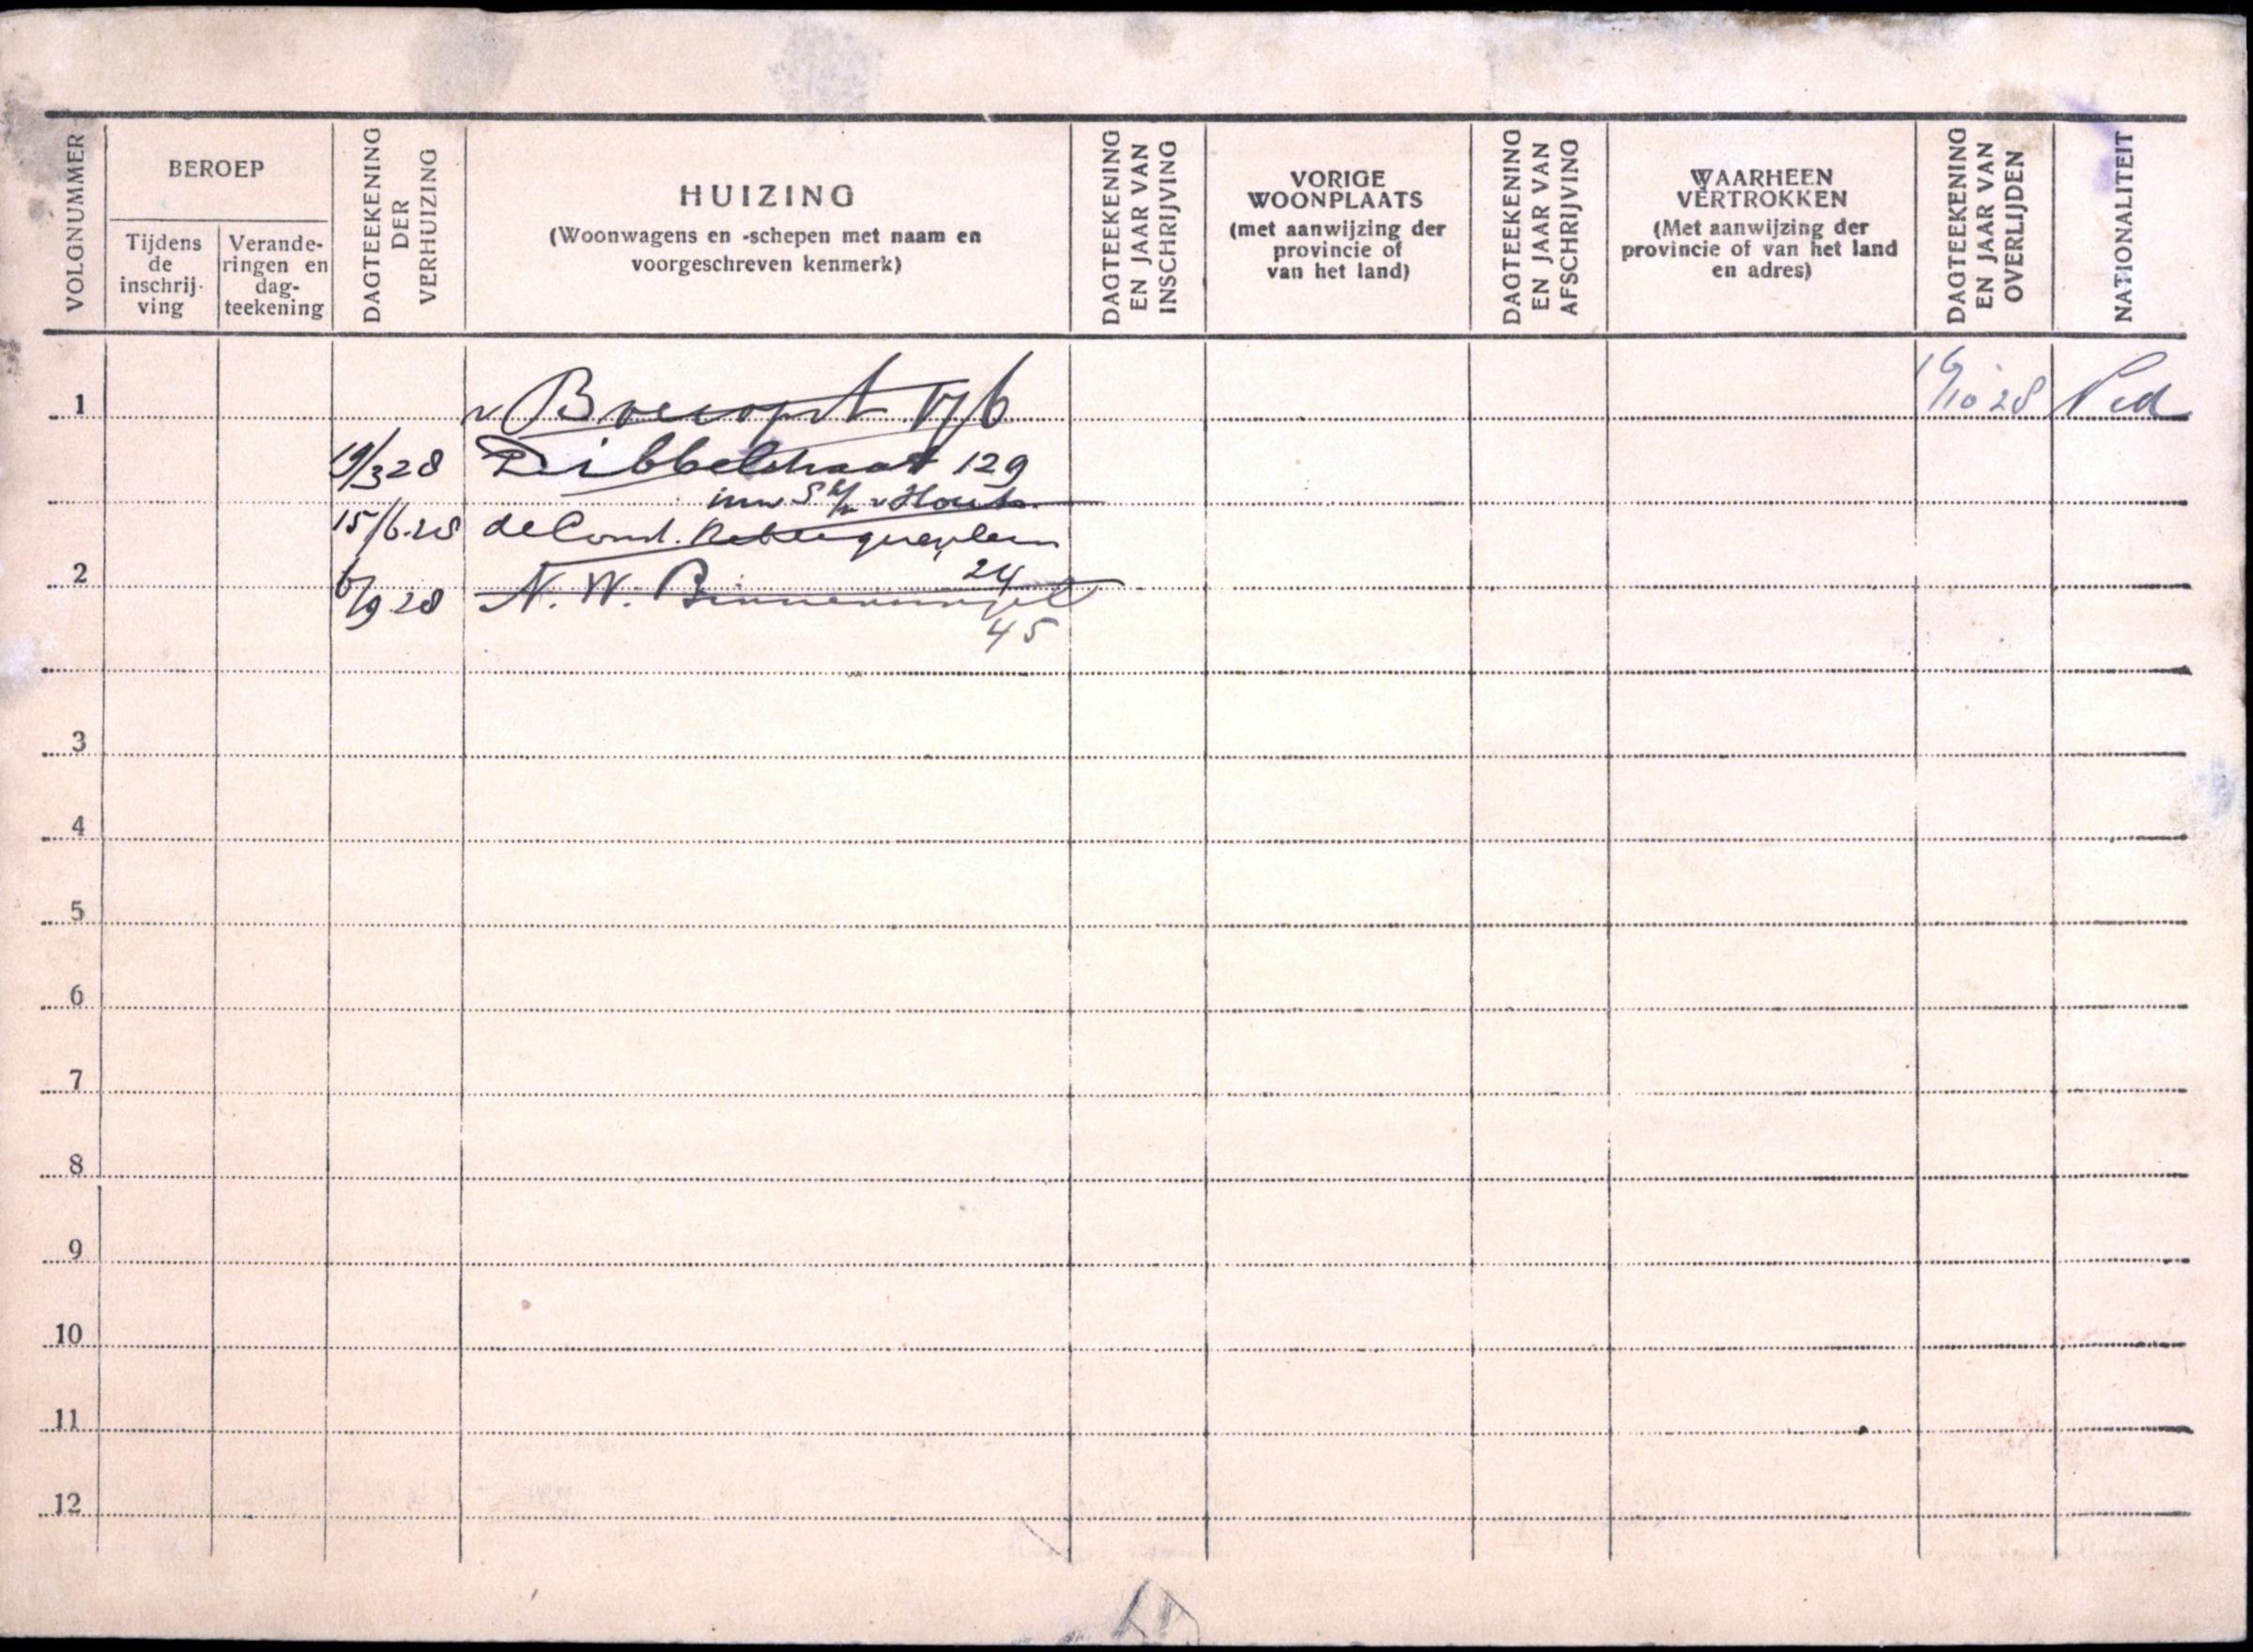 VOLGNUMMER
BEROEP
Tijdens de inschrij- ving
Verande- ringen en dag- teekening
DAGTEEKENING DER VERHUIZING
HUIZING
(Woonwagens en -schepen met naam en
voorgeschreven kenmerk)
DAGTEEKENING EN JAAR VAN INSCHRIJVING
VORIGE
WOONPLAATS
(met aanwijzing der
provincie of
van het land)
DAGTEEKENING EN JAAR VAN AFSCHRIJVING
WAARHEEN
VERTROKKEN
(Met aanwijzing der
provincie of van het land
en adres)
DAGTEEKENING EN JAAR VAN OVERLIJDEN
NATIONALITEIT
1 v 16/10 28 Ned
19/3 28 Dibbelstraat 129
inw
15/6.28 de
2 24
6/9 28 N. W. Binnensingel
45
3
4
5
6
7
8
9
10
11
12